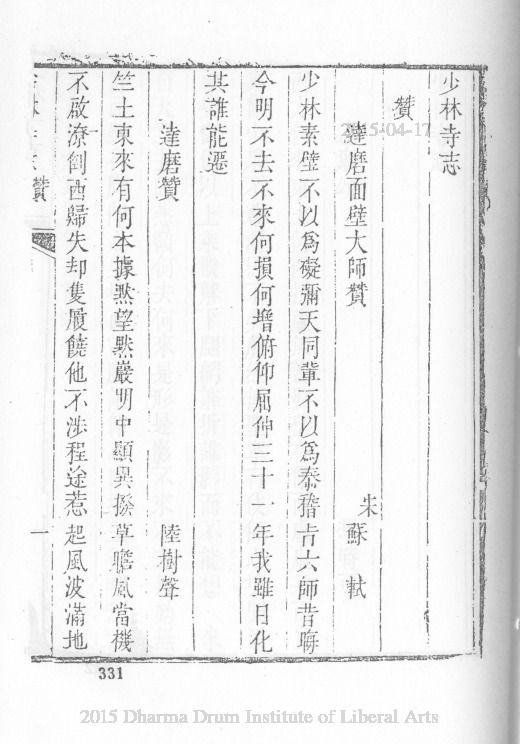 少林寺志
贊
達磨面壁大師贊
宋 蘇軾
少林素壁不以為礙彌天同輩不以為泰稽古六師昔晦
今明不去不來何損何增俯仰屈伸三十一年我雖日化
其誰能遷
達磨贊 陸樹聲
竺土東來有何本據黙望黙巖明中顯異撥草瞻風當機
不啟潦倒西歸失却隻履饒他不涉程途惹起風波滿地
贊
一
331
2015-04-17
2015 Dharma Drum Institute of Liberal Arts